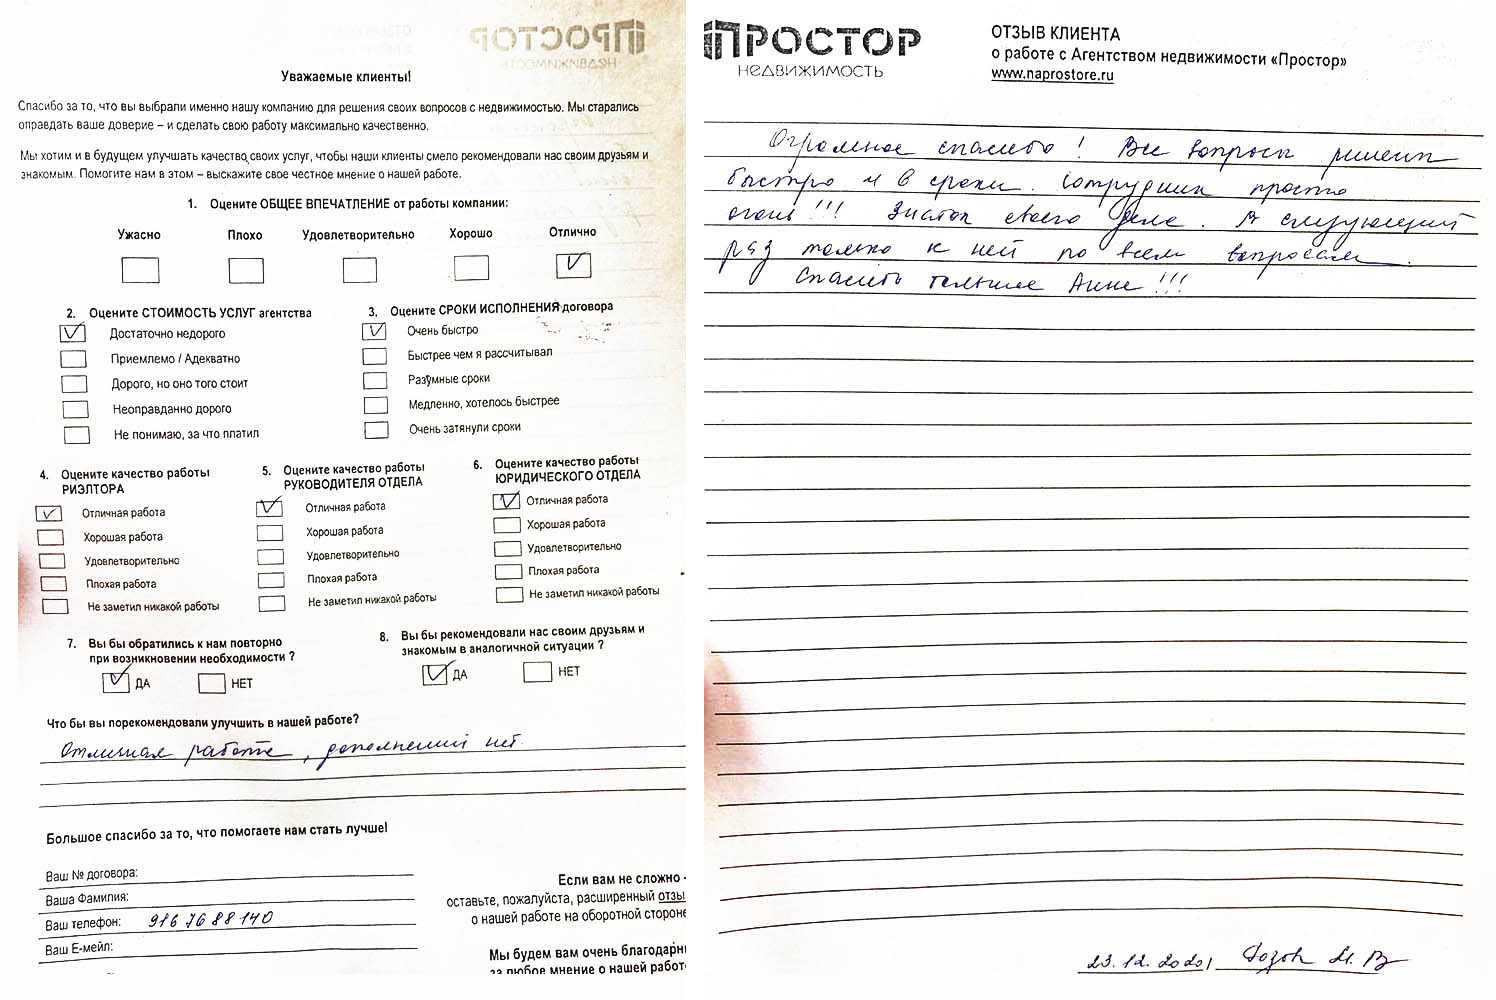 Уважаемые клиенты!
Спасибо за то, что вы выбрали именно нашу компанию для решения своих вопросов с недвижимостью. Мы старались
оправдать ваше доверие – и сделать свою работу максимально качественно.
Мы хотим и в будущем улучшать качество своих услуг, чтобы наши клиенты смело рекомендовали нас своим друзьям и
знакомым. Помогите нам в этом – выскажите свое честное мнение о нашей работе.
1. Оцените ОБЩЕЕ ВПЕЧАТЛЕНИЕ от работы компании:
Ужасно Плохо Удовлетворительно Хорошо Отлично
2. Оцените СТОИМОСТЬ УСЛУГ агентства
Достаточно недорого
Приемлемо / Адекватно
Дорого, но оно того стоит
Неоправданно дорого
Не понимаю, за что платил
3. Оцените СРОКИ ИСПОЛНЕНИЯ договора
Очень быстро
Быстрее чем я рассчитывал
Разумные сроки
Медленно, хотелось быстрее
Очень затянули сроки
4. Оцените качество работы
РИЭЛТОРА
Отличная работа
Хорошая работа
Удовлетворительно
Плохая работа
Не заметил никакой работы
5. Оцените качество работы
РУКОВОДИТЕЛЯ ОТДЕЛА
Отличная работа
Хорошая работа
Удовлетворительно
Плохая работа
Не заметил никакой работы
6. Оцените качество работы
ЮРИДИЧЕСКОГО ОТДЕЛА
Отличная работа
Хорошая работа
Удовлетворительно
Плохая работа
Не заметил никакой работы
7. Вы бы обратились к нам повторно
при возникновении необходимости ?
ДА НЕТ
8. Вы бы рекомендовали нас своим друзьям и
знакомым в аналогичной ситуации ?
ДА НЕТ
Что бы вы порекомендовали улучшить в нашей работе?
Отличная работа, дополнений нет.
Большое спасибо за то, что помогаете нам стать лучше!
Ваш № договора:
Ваша Фамилия:
Ваш телефон: 916 76 88 140
Ваш Е-мейл:
Если вам не сложно -
оставьте, пожалуйста, расширенный отзы
о нашей работе на оборотной стороне
Мы будем вам очень благодарны
за любое мнение о нашей работ
ПРОСТОР
НЕДВИЖИМОСТЬ
ОТЗЫВ КЛИЕНТА
о работе с Агентством недвижимости «Простор»
www.naprostore.ru
Огромное спасибо! Все вопросы решены
быстро и в сроки. Сотрудник просто
огонь!!! Знаток своего дела. В следующий
раз только к ней по всем вопросам.
Спасибо большое Анне!!!
23.12.2020